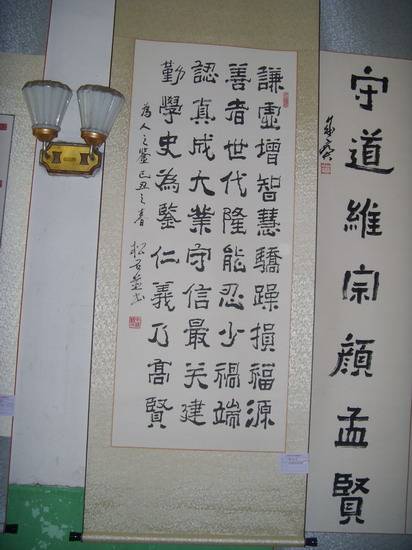 守道維宗顏孟賢
謙虛增智慧驕躁損福源
善者世代隆能忍少禍端
認真成大業守信最关建
勤學史為鑒仁義乃髙賢
為人之鑒己丑之春